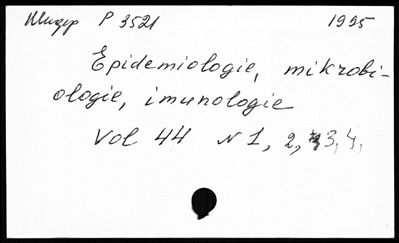 Шифр Р 3521 1995
Epidemiologie, mikrobi-
ologie, imunologie
Vol 44 N 1, 2, 3, 4,